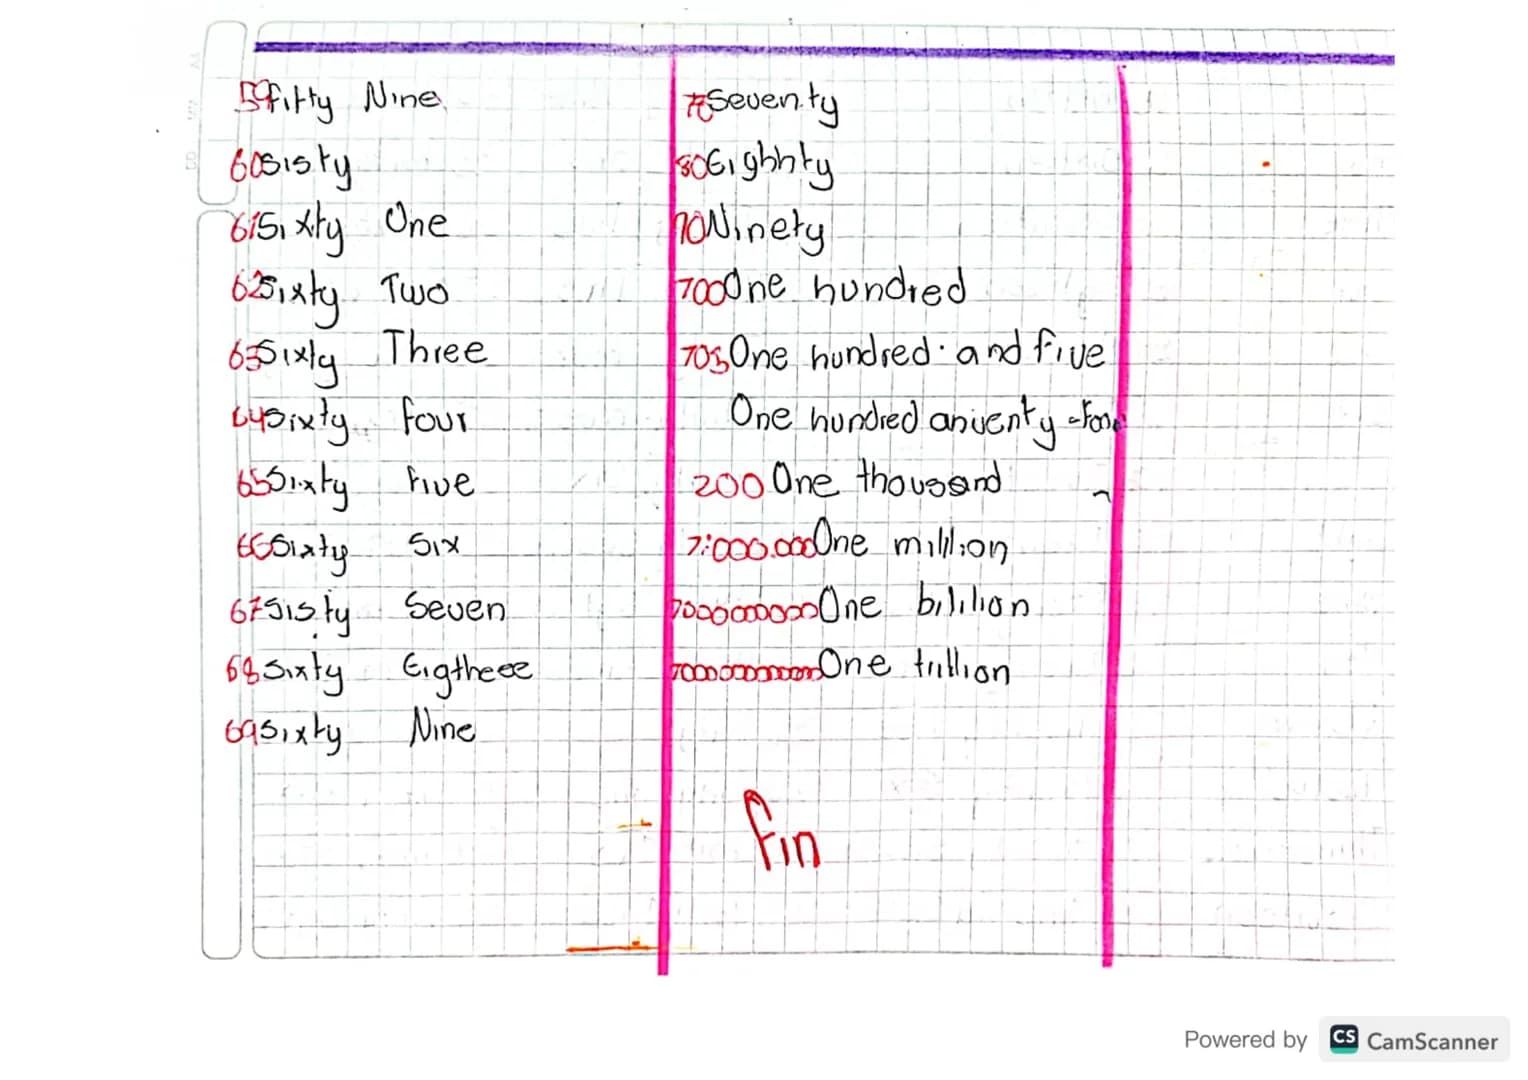 59 fifty Nine
60 sisty
61 Sixty One
62 Sixty Two
63 Sixty Three
64 sixty four
65 Sixty five
66 Sixty Six
67 Sisty Seven
68 Sixty Eigtheee
69 sixty Nine
70 Seventy
80 Eighhty
90 Ninety
100 One hundred
105 One hundred and five
One hundred
200 One thousand
1:000.000 One milllion
One bililion
One trillion
fin
Powered by CS CamScanner